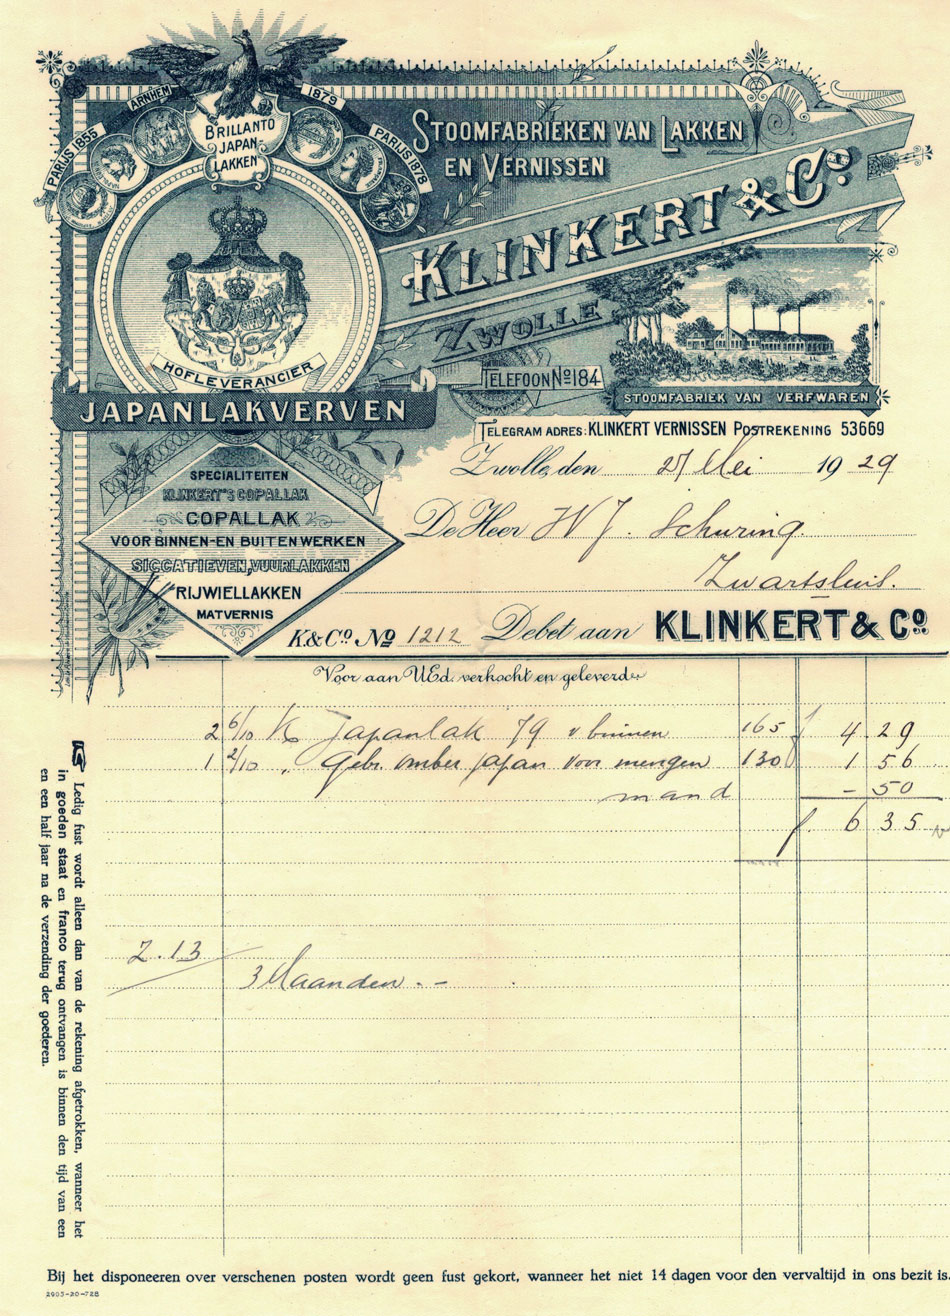 PARIJS 1855
ARNHEM
1879
PARIJS 1878
BRILLANTO
JAPAN
LAKKEN
STOOMFABRIEKEN VAN LAKKEN
EN VERNISSEN
KLINKERT & Co.
ZWOLLE
TELEFOON No 184
HOFLEVERANCIER
JAPANLAKVERVEN
STOOMFABRIEK VAN VERFWAREN
TELEGRAM ADRES: KLINKERT VERNISSEN POSTREKENING 53669
Zwolle, den 27 Mei 1929
SPECIALITEITEN
KLINKERT'S COPALLAK
COPALLAK
VOOR BINNEN-EN BUITENWERKEN
SICCATIEVEN, VUURLAKKEN
RIJWIELLAKKEN
MATVERNIS
De Heer W J. Schuring.
Zwartsluis.
K & Co. No 1212 Debet aan KLINKERT & Co.
Voor aan UEd. verkocht en geleverd:
2 6/10 K Japanlak 79 v binnen 165 f 4.29
1 2/10 " Gebr. omber japan voor mengen 130 1 56
mand - 50
f. 6 35
2.13
3 Maanden. -
Ledig fust wordt alleen dan van de rekening afgetrokken, wanneer het
in goeden staat en franco terug ontvangen is binnen den tijd van een
en een half jaar na de verzending der goederen.
Bij het disponeeren over verschenen posten wordt geen fust gekort, wanneer het niet 14 dagen voor den vervaltijd in ons bezit is.
2905-20-728